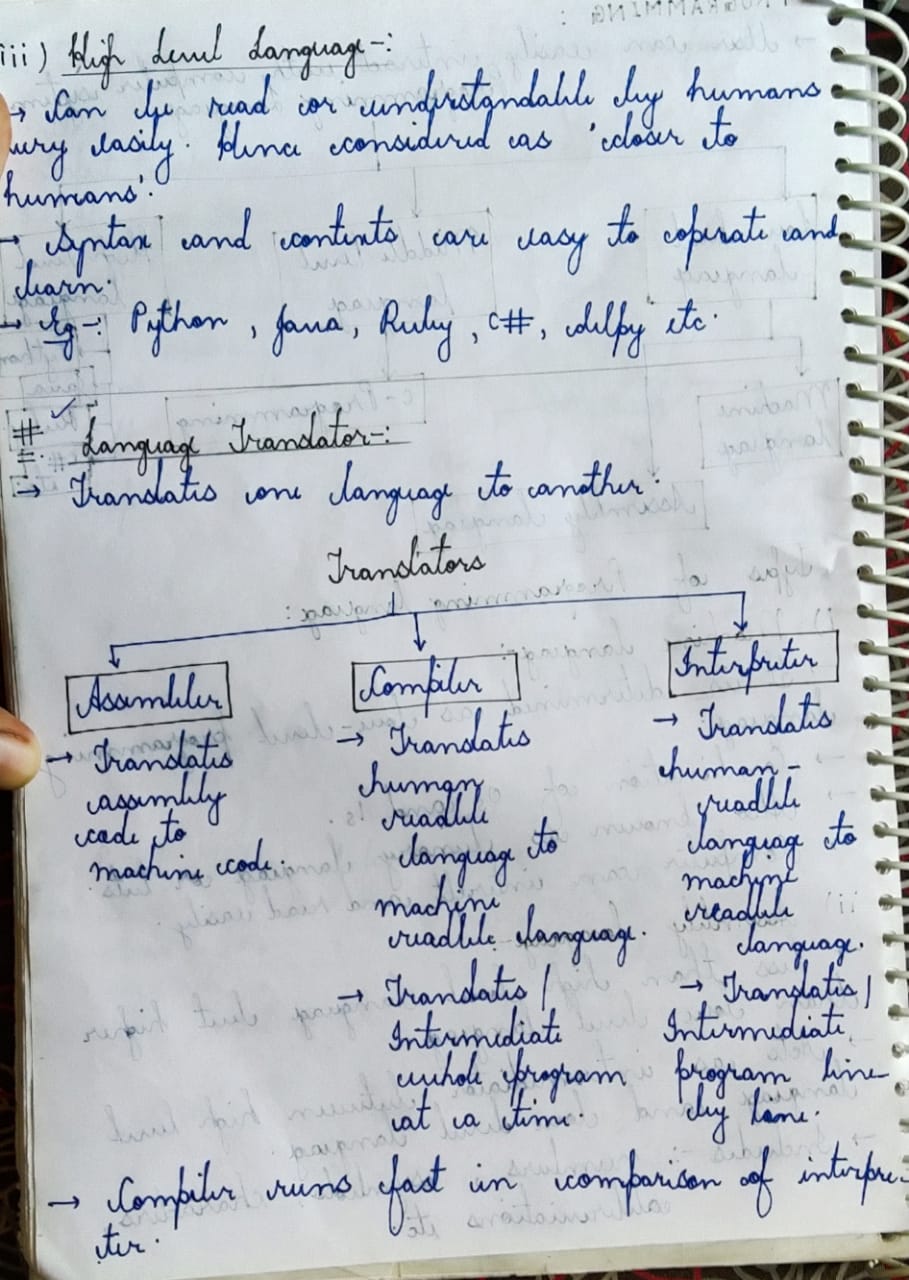 iii) High Level Language-:
→ Can be read or understandable by humans
very easily. Hence considered as 'closer to
humans'.
→ Syntax and contents are easy to operate and
learn.
→ Eg-: Python, Java, Ruby, C#, delpy etc.
# Language Translator-:
→ Translates one language to another.
Translators
Assembler
→ Translates
assembly
code to
machine code.
Compiler
→ Translates
human
readble
language to
machine
readble language.
→ Translates /
Intermediate
whole program
at a time.
Interpreter
→ Translates
human-
readble
language to
machine
readble
language.
→ Translates /
Intermediate
program line
by line.
→ Compiler runs fast in comparison of interpre-
ter.